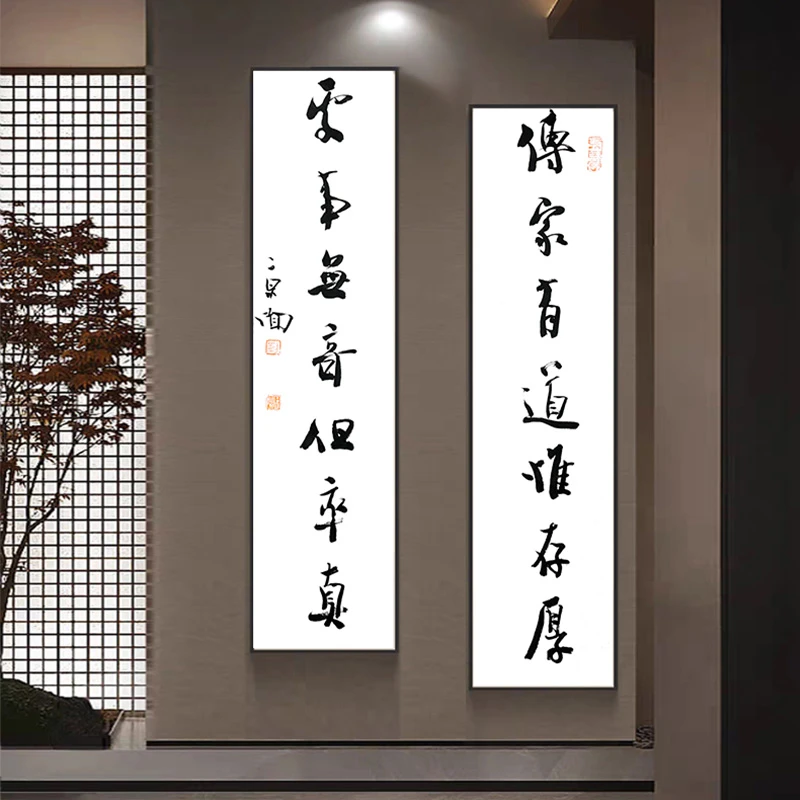 傳家有道惟存厚
處事無奇但率真